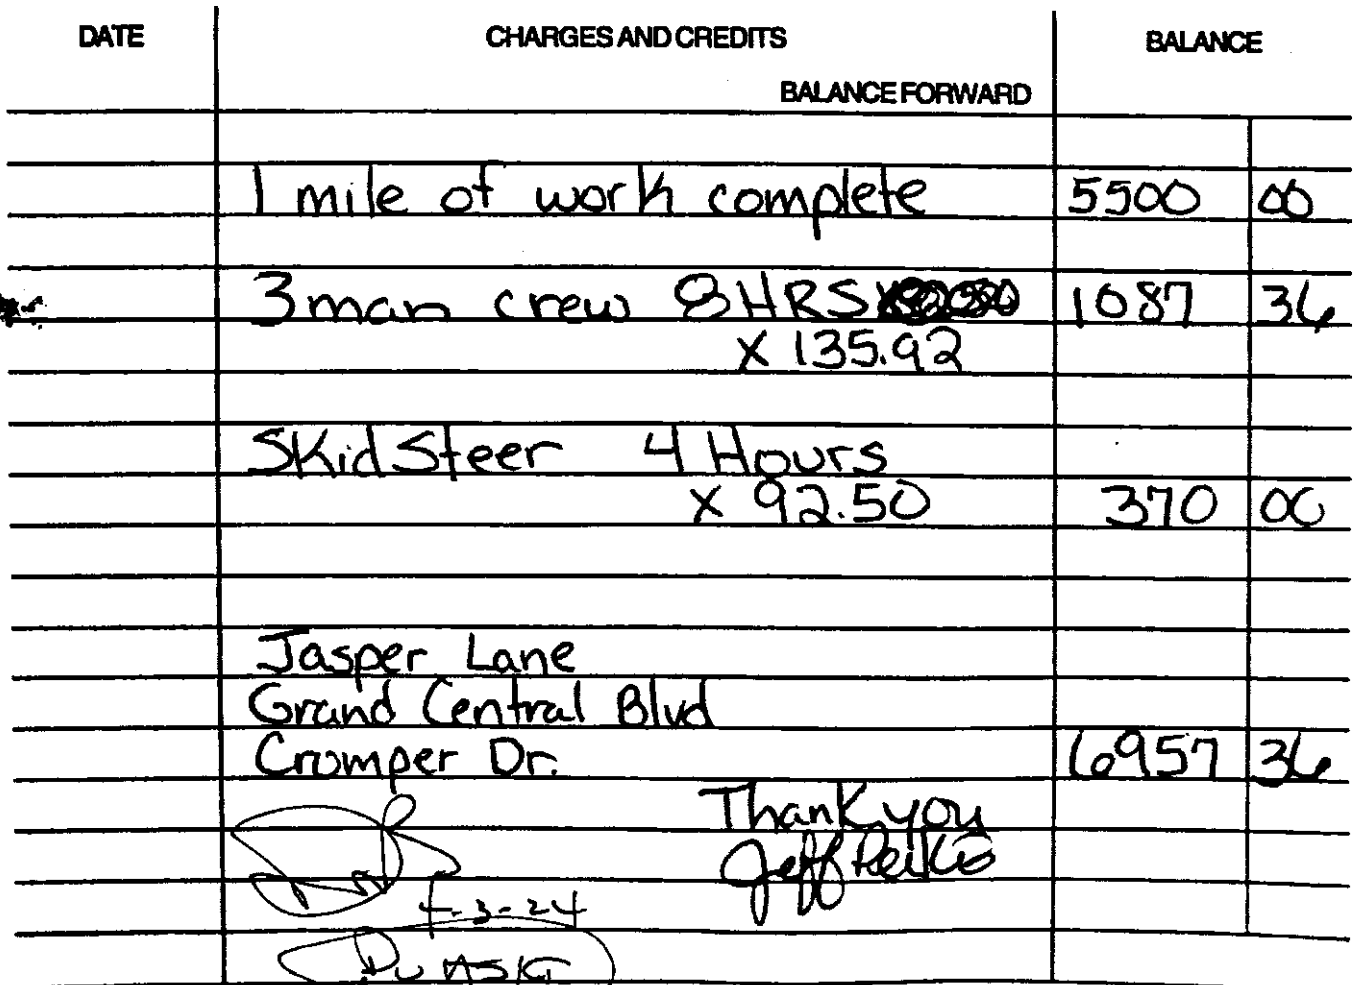 DATE CHARGES AND CREDITS BALANCE
BALANCE FORWARD
1 mile of work complete 5500 00
3 man crew 8 HRS 1087 36
X 135.92
Skid Steer 4 Hours
X 92.50 370 00
Jasper Lane
Grand Central Blvd
Cromper Dr. 6957 36
Thank you
Jeff
-3-24